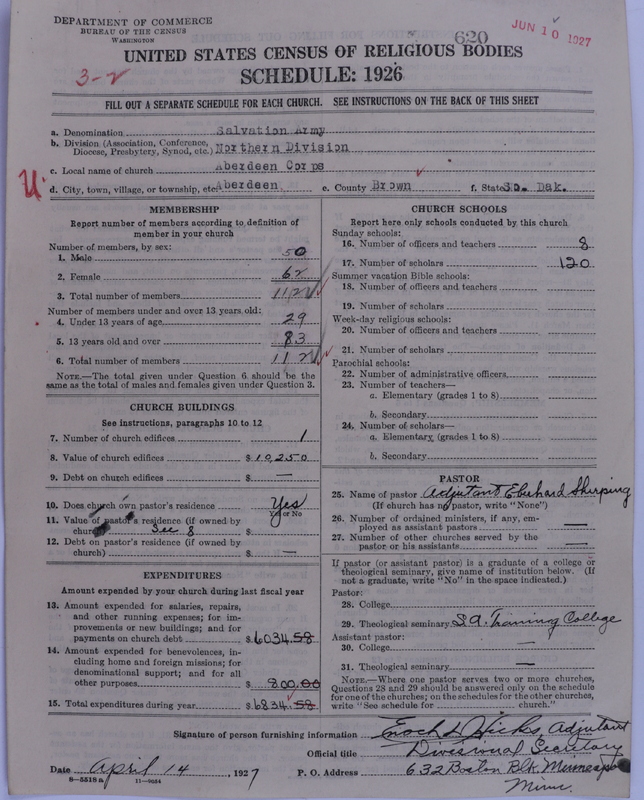 DEPARTMENT OF COMMERCE
BUREAU OF THE CENSUS
WASHINGTON
620
JUN 10 1927
UNITED STATES CENSUS OF RELIGIOUS BODIES
SCHEDULE: 1926
3-2
FILL OUT A SEPARATE SCHEDULE FOR EACH CHURCH. SEE INSTRUCTIONS ON THE BACK OF THIS SHEET
a. Denomination Salvation Army
b. Division (Association, Conference, Diocese, Presbytery, Synod, etc.) Northern Division
c. Local name of church Aberdeen Corps
U.
d. City, town, village, or township, etc. Aberdeen e. County Brown f. State So. Dak.
MEMBERSHIP
Report number of members according to definition of
member in your church
Number of members, by sex:
1. Male 50
2. Female 62
3. Total number of members 112
Number of members under and over 13 years old:
4. Under 13 years of age 29
5. 13 years old and over 83
6. Total number of members 112
NOTE.—The total given under Question 6 should be the
same as the total of males and females given under Question 3.
CHURCH BUILDINGS
See instructions, paragraphs 10 to 12
7. Number of church edifices 1
8. Value of church edifices $ 10,250
9. Debt on church edifices $ —
10. Does church own pastor's residence Yes
Yes or No
11. Value of pastor's residence (if owned by
church) See 8 $
12. Debt on pastor's residence (if owned by
church) $ —
EXPENDITURES
Amount expended by your church during last fiscal year
13. Amount expended for salaries, repairs,
and other running expenses; for im-
provements or new buildings; and for
payments on church debt $ 6034.58
14. Amount expended for benevolences, in-
cluding home and foreign missions; for
denominational support; and for all
other purposes $ 800.00
15. Total expenditures during year $ 6834.58
CHURCH SCHOOLS
Report here only schools conducted by this church
Sunday schools:
16. Number of officers and teachers 8
17. Number of scholars 120
Summer vacation Bible schools:
18. Number of officers and teachers
19. Number of scholars
Week-day religious schools:
20. Number of officers and teachers
21. Number of scholars
Parochial schools:
22. Number of administrative officers
23. Number of teachers—
a. Elementary (grades 1 to 8)
b. Secondary
24. Number of scholars—
a. Elementary (grades 1 to 8)
b. Secondary
PASTOR
25. Name of pastor Adjutant Eberhard Shirping
(If church has no pastor, write "None")
26. Number of ordained ministers, if any, em-
ployed as assistant pastors —
27. Number of other churches served by the
pastor or his assistants —
If pastor (or assistant pastor) is a graduate of a college or
theological seminary, give name of institution below. (If
not a graduate, write "No" in the space indicated.)
Pastor:
28. College
29. Theological seminary S.A. Training College
Assistant pastor:
30. College —
31. Theological seminary —
NOTE.—Where one pastor serves two or more churches,
Questions 28 and 29 should be answered only on the schedule
for one of the churches; on the schedules for the other churches,
write "See schedule for church."
Signature of person furnishing information Enoch L Hicks, Adjutant
Official title Divisional Secretary
Date April 14, 1927 P. O. Address 632 Boston Blk Minneapo
Minn.
8—5518a 11—9054